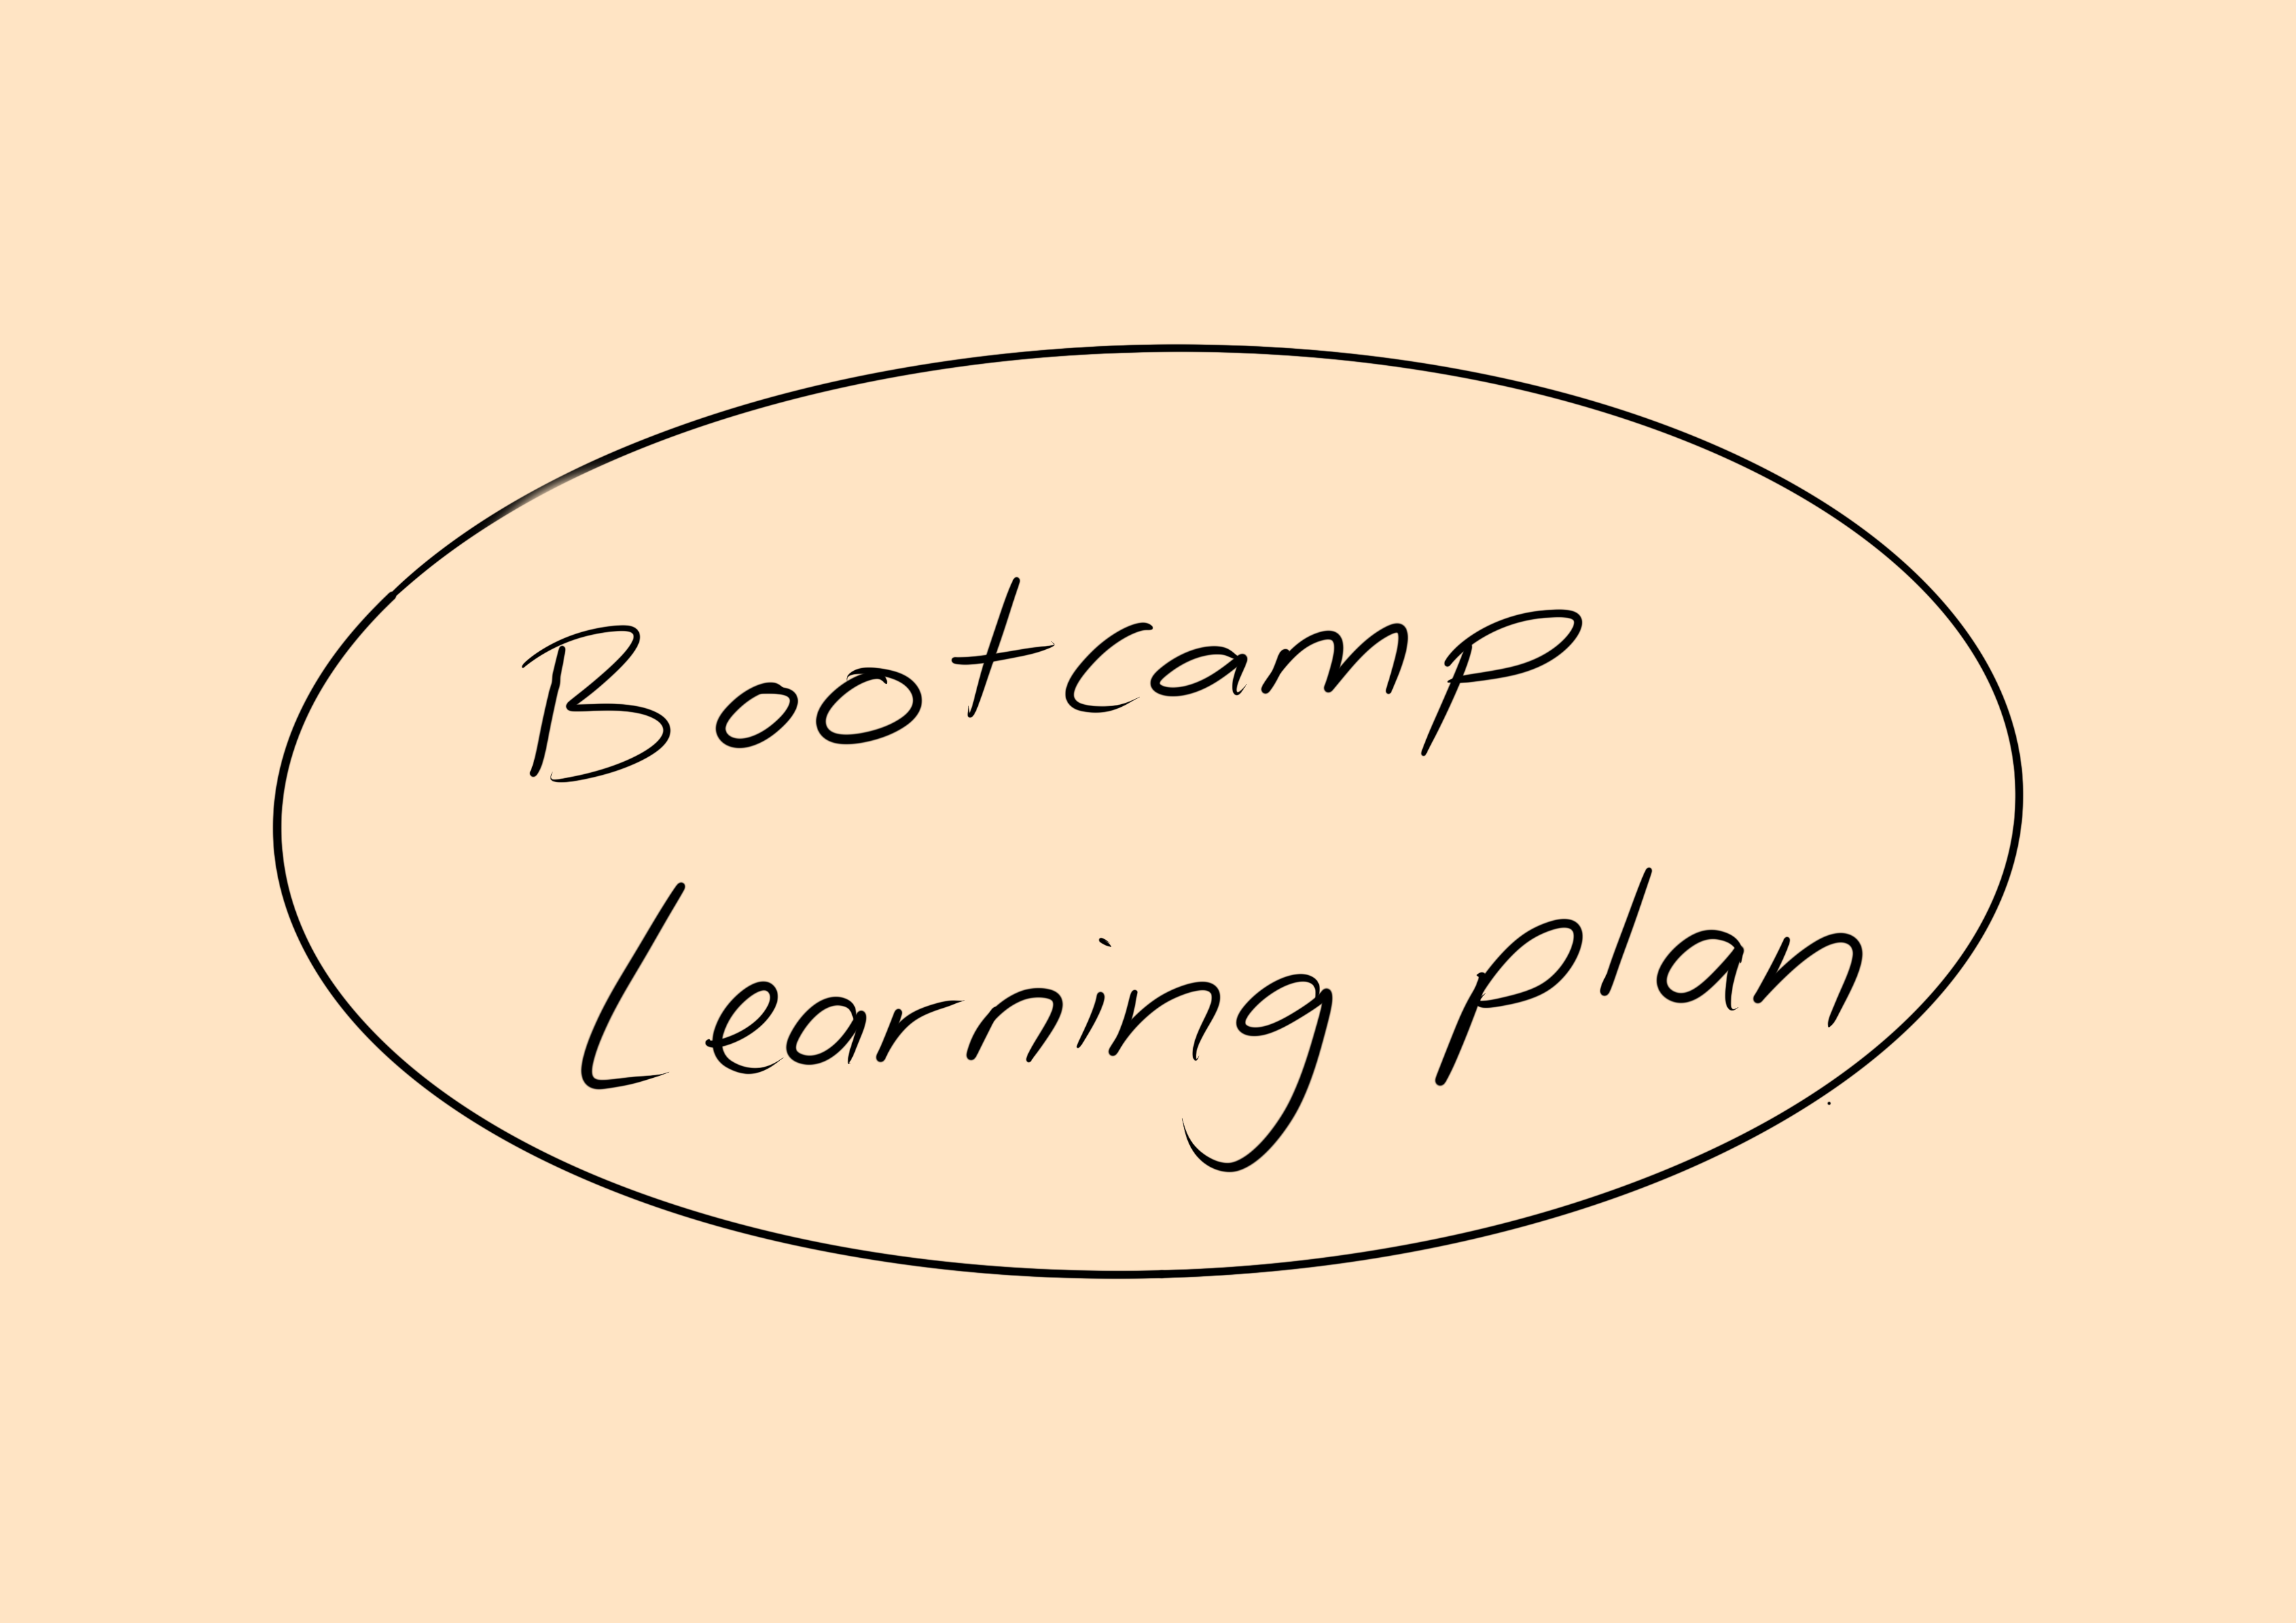 Bootcamp
Learning plan